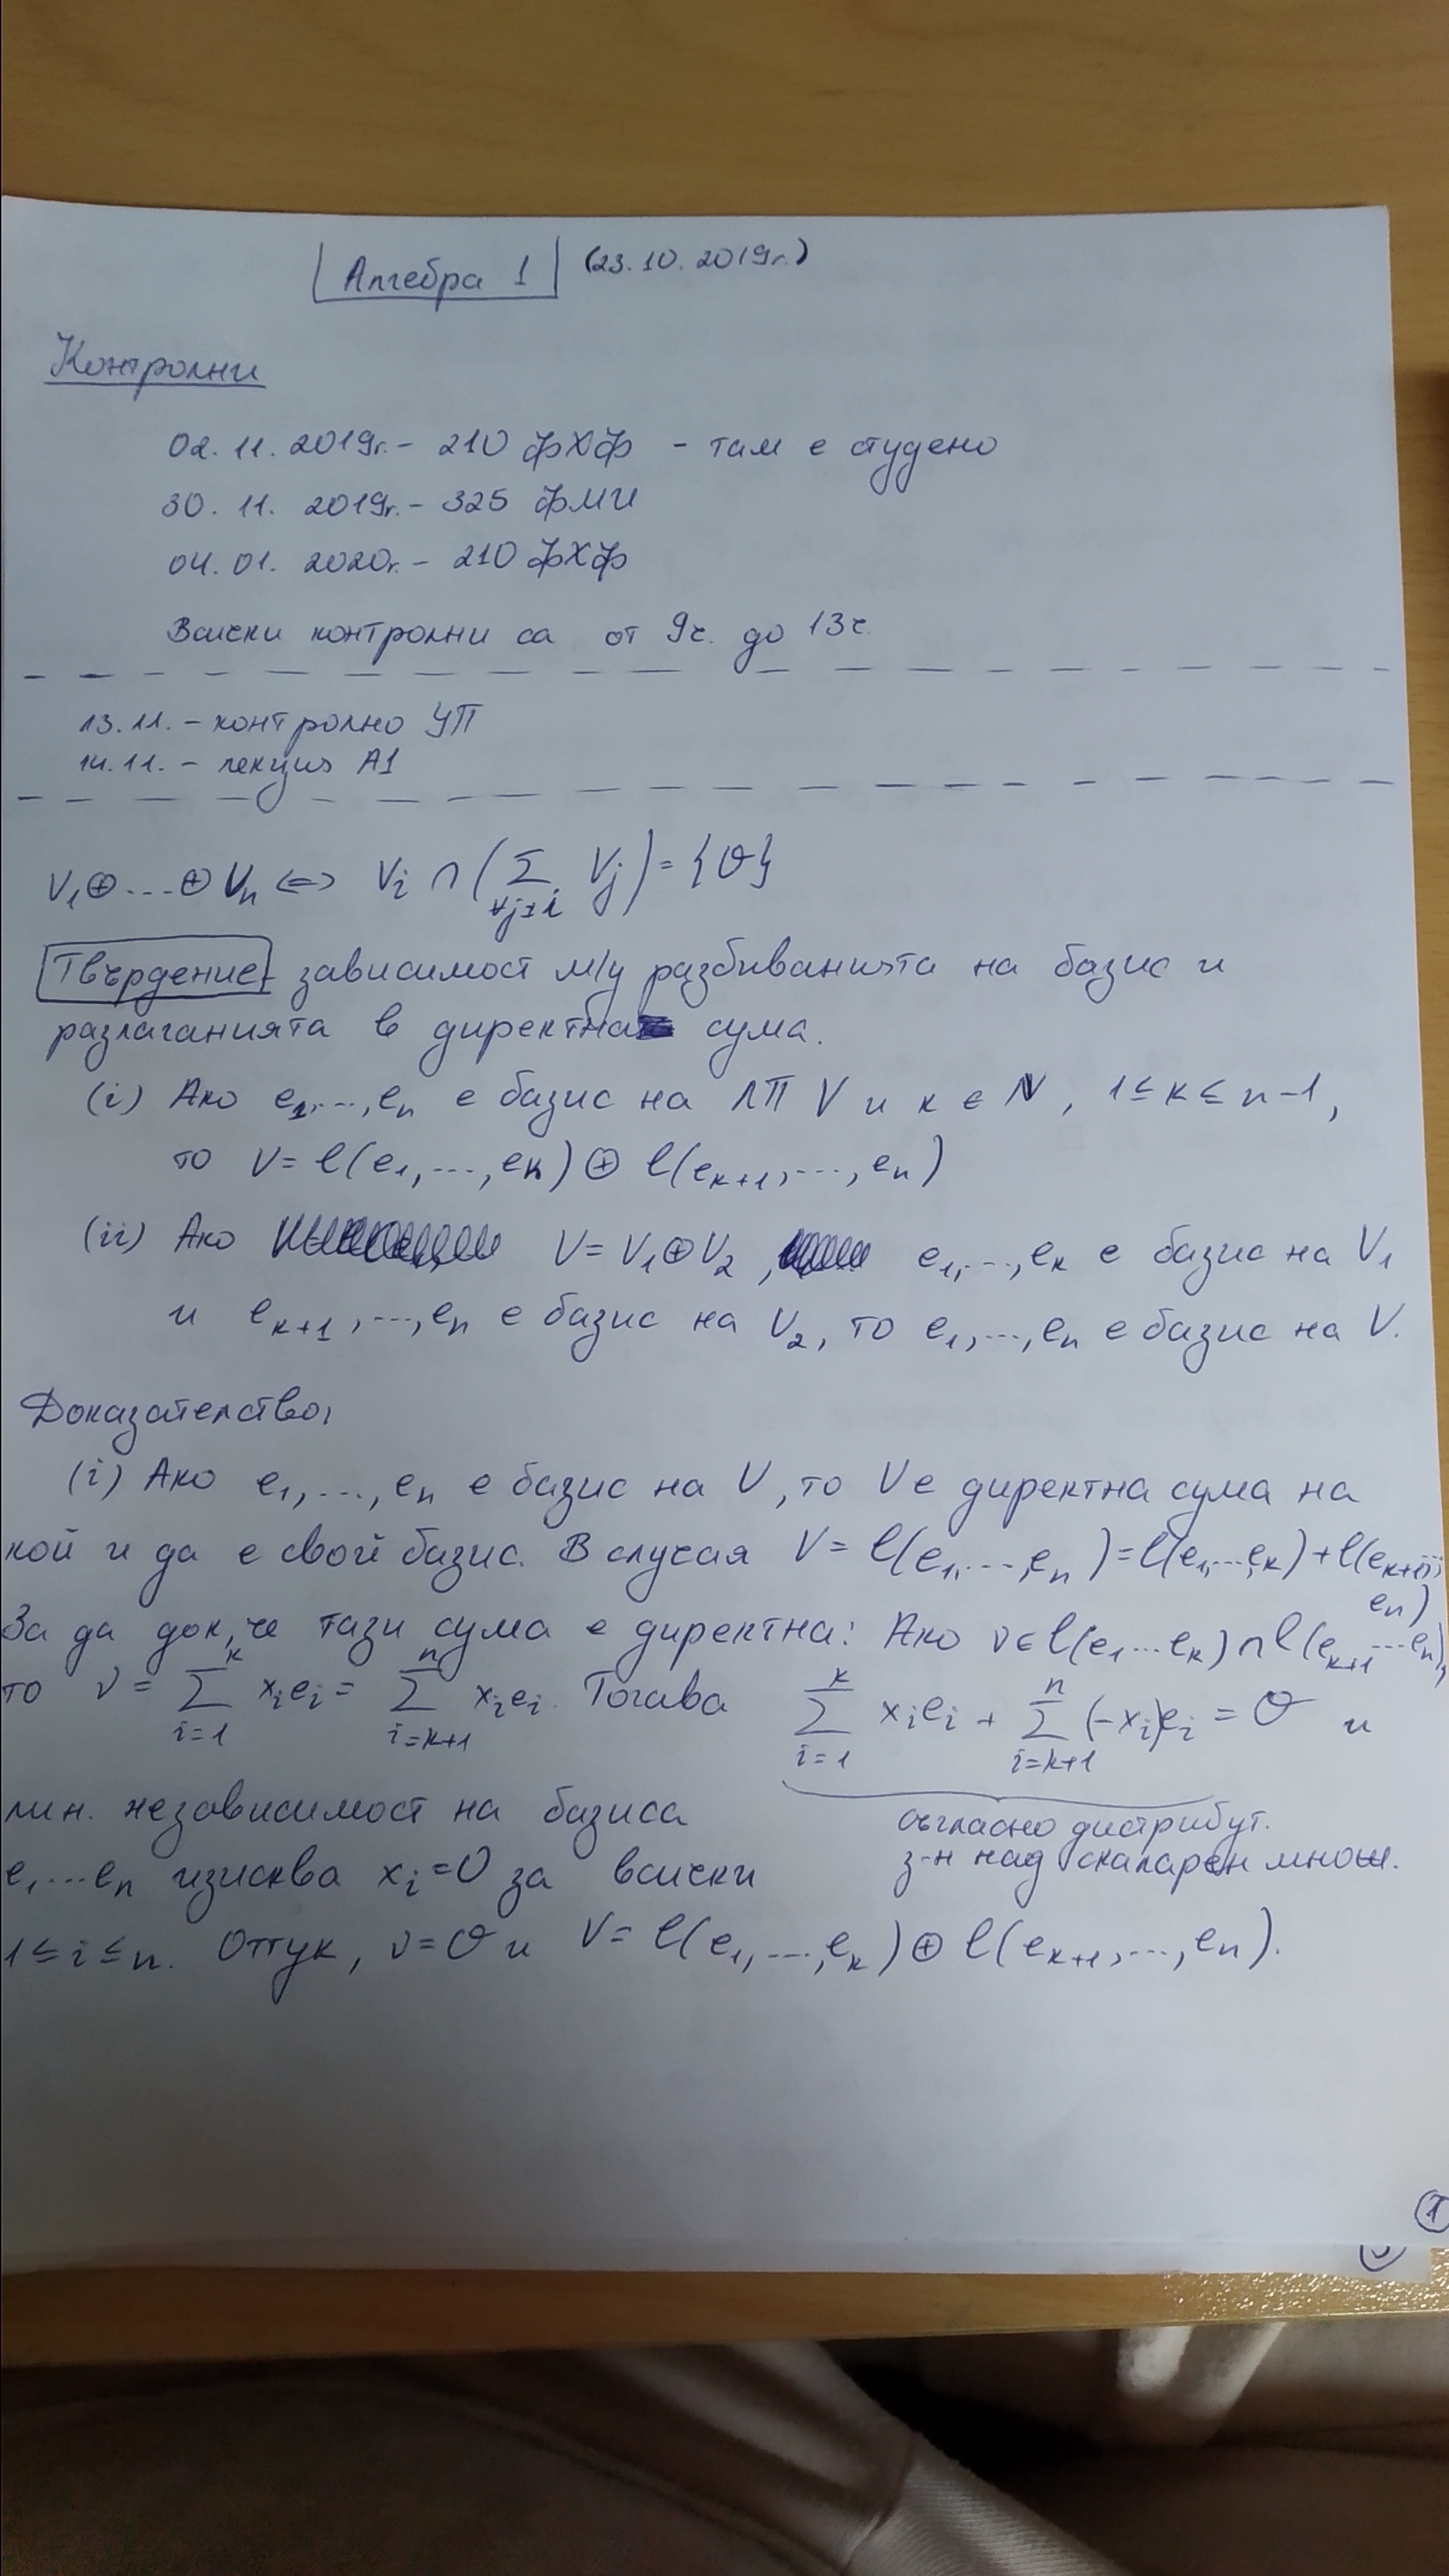 Алгебра 1 (23.10.2019г.)
Контролни
02.11.2019г. - 210 ФХФ - там е студено
30.11.2019г. - 325 ФМИ
04.01.2020г. - 210 ФХФ
Всички контролни са от 9ч. до 13ч.
13.11. - контролно УП
14.11. - лекция А1
V₁⊕...⊕Vₙ ⇔ Vᵢ ∩ (∑_{∀j≠i} Vⱼ) = {𝒪}
Твърдение - зависимост м/у разбиванията на базис и
разлаганията в директна сума.
(i) Ако e₁,...,eₙ е базис на ЛП V и k ∈ N, 1 ≤ k ≤ n-1,
то V = l(e₁,...,eₖ) ⊕ l(eₖ₊₁,...,eₙ)
(ii) Ако V = V₁⊕V₂, e₁,...,eₖ е базис на V₁
и eₖ₊₁,...,eₙ е базис на V₂, то e₁,...,eₙ е базис на V.
Доказателство:
(i) Ако e₁,...,eₙ е базис на V, то V е директна сума на
кой и да е свой базис. В случая V = l(e₁,...,eₙ) = l(e₁,...,eₖ) + l(eₖ₊₁,...,
eₙ)
За да док, че тази сума е директна: Ако v ∈ l(e₁...eₖ) ∩ l(eₖ₊₁...eₙ),
то v = ∑_{i=1}^{k} xᵢeᵢ = ∑_{i=k+1}^{n} xᵢeᵢ. Тогава ∑_{i=1}^{k} xᵢeᵢ + ∑_{i=k+1}^{n} (-xᵢ)eᵢ = 𝒪 и
лин. независимост на базиса
съгласно дистрибут.
з-н над скаларен множ.
e₁...eₙ изисква xᵢ=0 за всички
1 ≤ i ≤ n. Оттук, v=𝒪 и V = l(e₁,...,eₖ) ⊕ l(eₖ₊₁,...,eₙ).
1